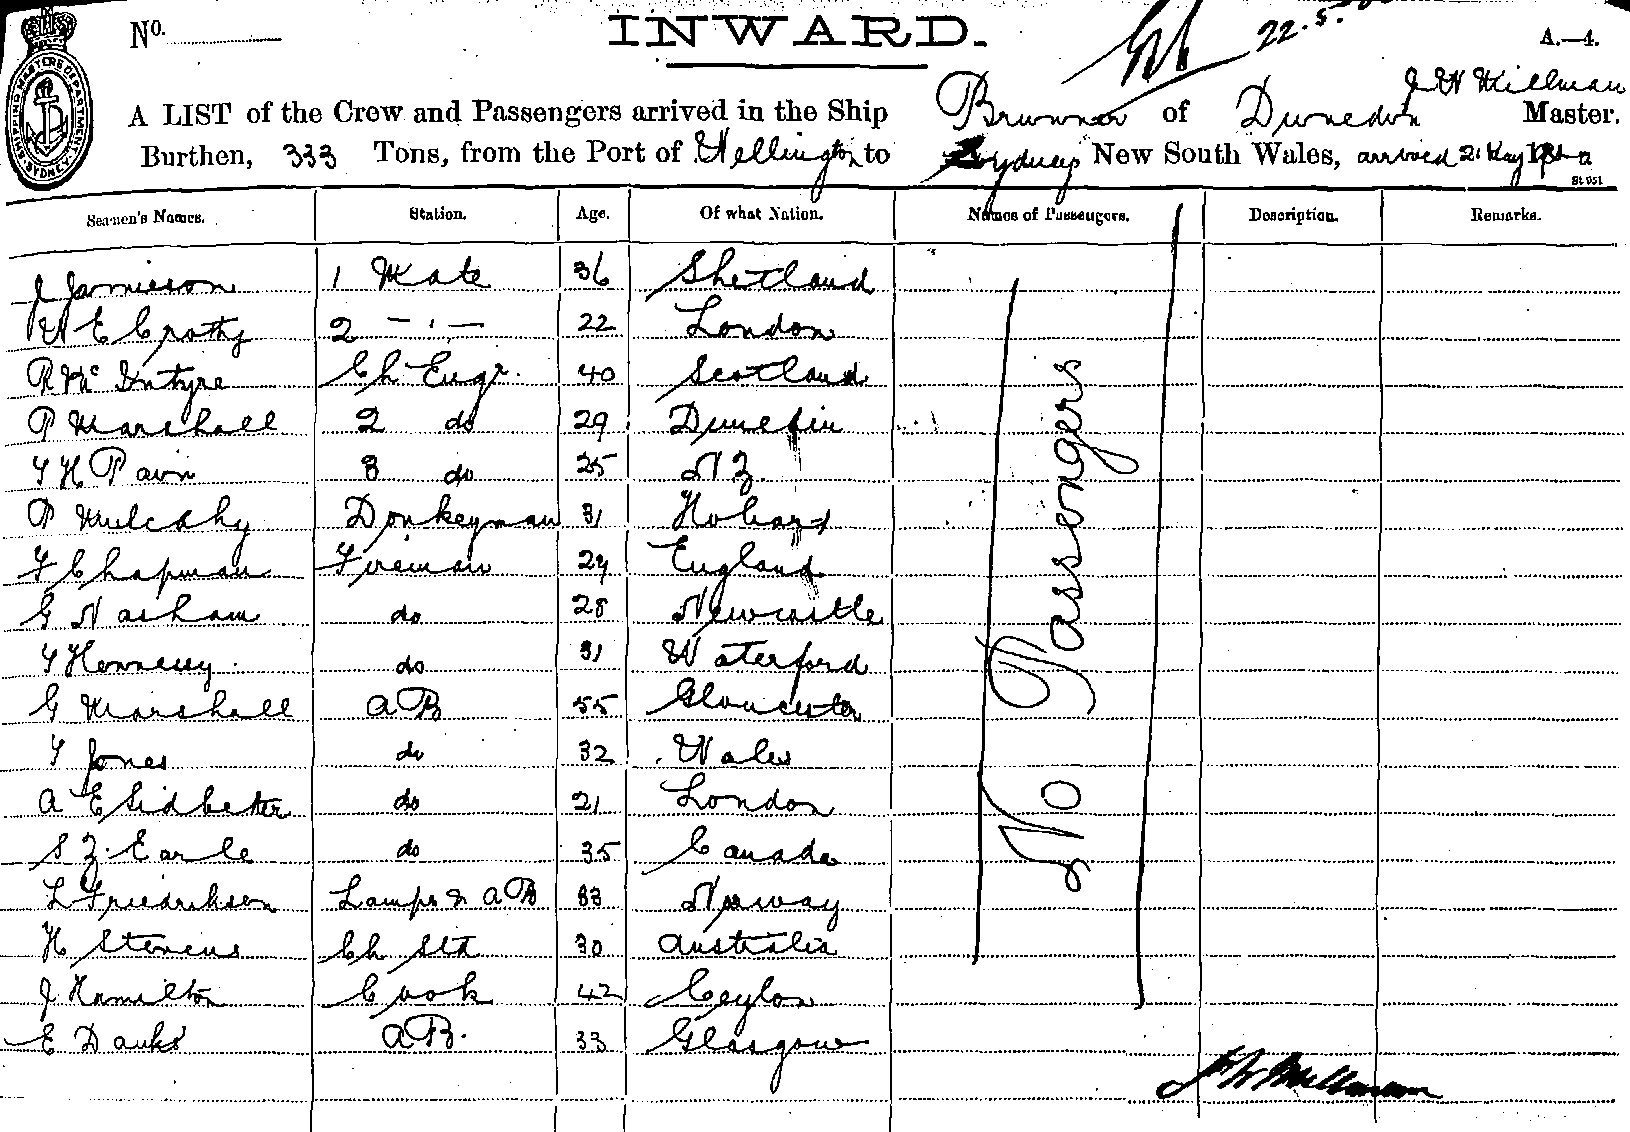 No. INWARD. 22.5. A.—4.
J W Willman
A LIST of the Crew and Passengers arrived in the Ship Brunner of Dunedin Master.
Burthen, 333 Tons, from the Port of Wellington to Sydney New South Wales, arrived 21 May
Seamen's Names. Station. Age. Of what Nation. Names of Passengers. Description. Remarks.
J Jamieson 1 Mate 36 Shetland
W E Crotty 2 - " - 22 London
R Mc Intyre Ch Engr. 40 Scotland
P Marshall 2 do 29 Dunedin
T H Pavn 3 do 25 N Z.
P Mulcahy Donkeyman 31 Hobart
F Chapman Fireman 29 England
G Nasham do 28 Newcastle
T Hennessy do 31 Waterford
G Marshall AB 55 Gloucester
T Jones do 32 Wales
A E Lidbetter do 21 London
S Z. Earle do 35 Canada
L Friedriksen Lamps & AB 33 Norway
H Stevens Ch Std 30 Australia
J Hamilton Cook 42 Ceylon
E Danks AB. 33 Glasgow
No Passengers
J W Willman